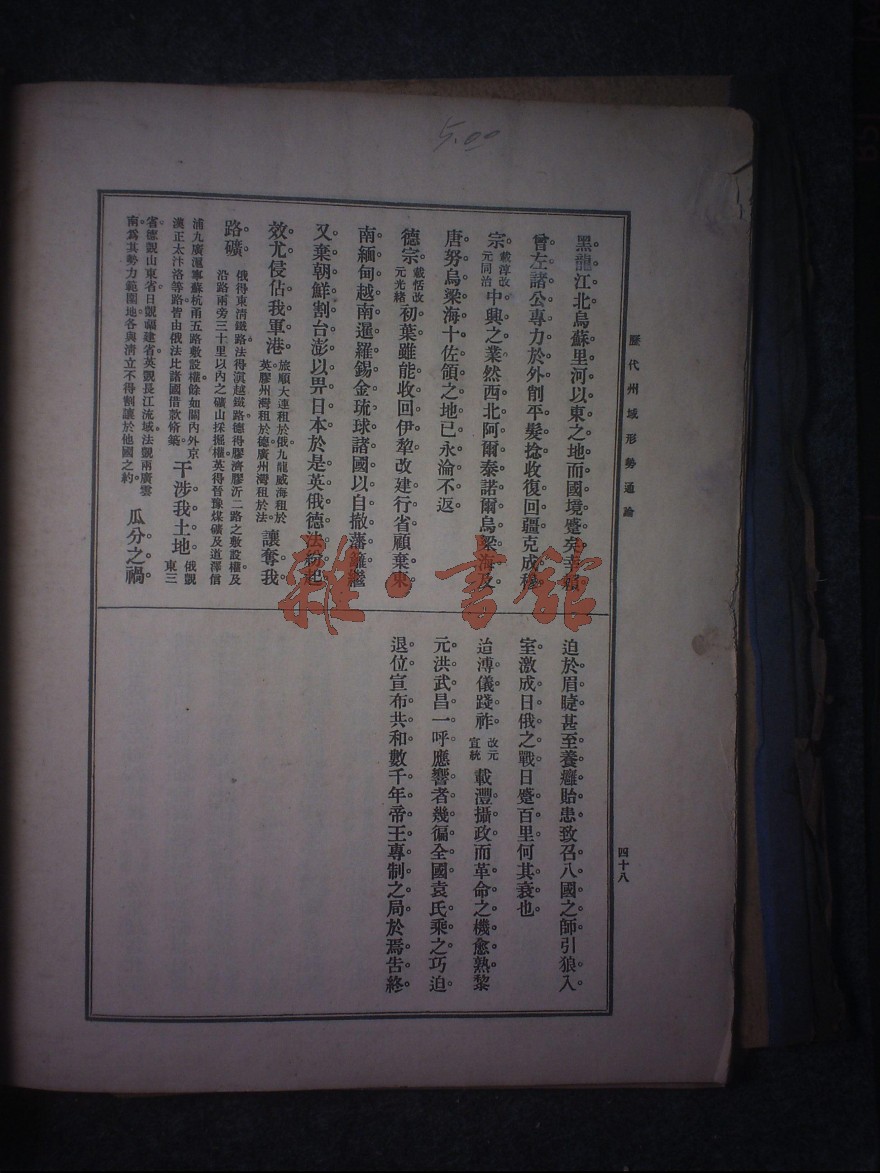 5.00
歷代州域形勢通論
黑龍江北烏蘇里河以東之地而國境蹙矣幸賴
曾左諸公專力於外削平髮捻收復回疆克成穆
宗載淳改元同治中興之業然西北阿爾泰諾爾烏梁海及
唐努烏梁海十佐領之地已永淪不返
德宗載恬改元光緒初葉雖能收回伊犂改建行省顧棄東
南緬甸越南暹羅錫金琉球諸國以自撤藩籬繼
又棄朝鮮割台澎以畀日本於是英俄德法紛起
效尤侵佔我軍港旅順大連租於俄九龍威海租於英膠州灣租於德廣州灣租於法讓奪我
路礦俄得東清鐵路法得滇越鐵路德得膠濟膠沂二路之敷設權及沿路兩旁三十里以內之礦山採掘權英得晉豫煤礦及道澤信
浦九廣滬寧蘇杭甬五路敷設權餘如關內外京漢正太汴洛等路皆由俄法比諸國借款脩築干涉我土地俄覬東三
省德覬山東省日覬福建省英覬長江流域法覬兩廣雲南爲其勢力範圍地各與淸立不得割讓於他國之約瓜分之禍
迫於眉睫甚至養癰貽患致召八國之師引狼入
室激成日俄之戰日蹙百里何其衰也
迨溥儀踐祚改元宣統載灃攝政而革命之機愈熟黎
元洪武昌一呼應響者幾徧全國袁氏乘之巧迫
退位宣布共和數千年帝王專制之局於焉吿終
四十八
雜·書館